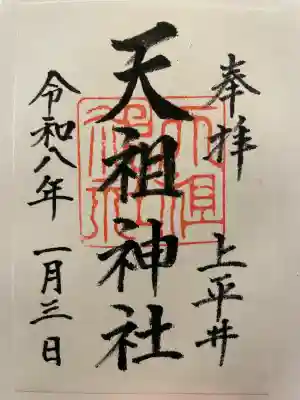 奉拝
上平井
天祖神社
令和八年 一月三日